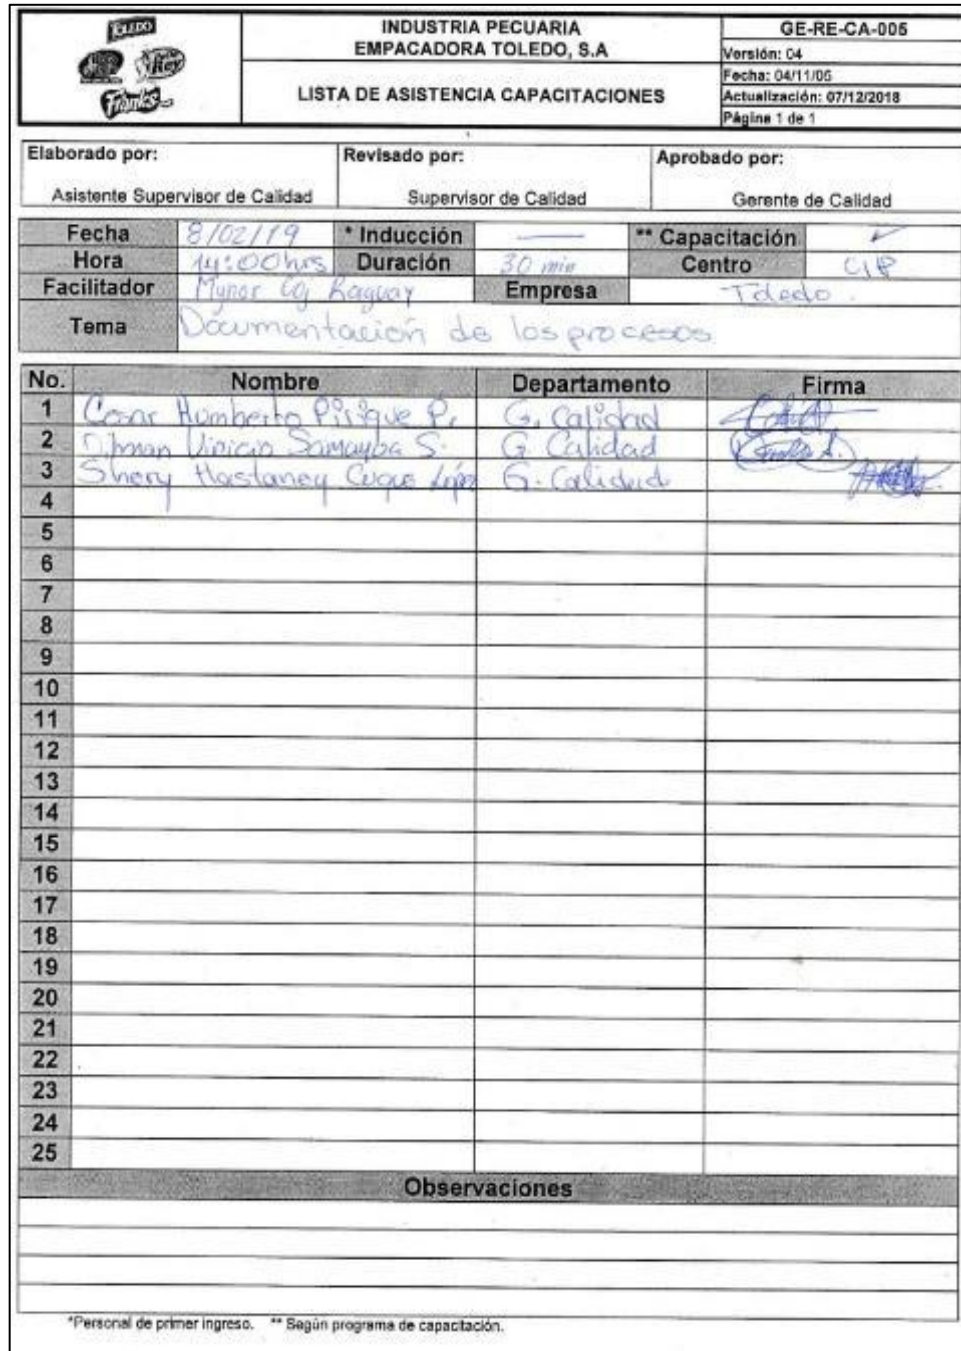 TOLEDO
INDUSTRIA PECUARIA
EMPACADORA TOLEDO, S.A
LISTA DE ASISTENCIA CAPACITACIONES
GE-RE-CA-005
Versión: 04
Fecha: 04/11/05
Actualización: 07/12/2018
Página 1 de 1
Elaborado por: Revisado por: Aprobado por:
Asistente Supervisor de Calidad Supervisor de Calidad Gerente de Calidad
Fecha 8/02/19 * Inducción — ** Capacitación ✓
Hora 14:00hrs Duración 30 min Centro CIP
Facilitador Mynor Empresa Toledo.
Tema Documentación de los procesos
No. Nombre Departamento Firma
1 Cesar Humberto Pirique P. G. Calidad
2 Vinicio Samayoa S. G. Calidad
3 Shery Cuque López G. Calidad
4
5
6
7
8
9
10
11
12
13
14
15
16
17
18
19
20
21
22
23
24
25
Observaciones
*Personal de primer ingreso. ** Según programa de capacitación.